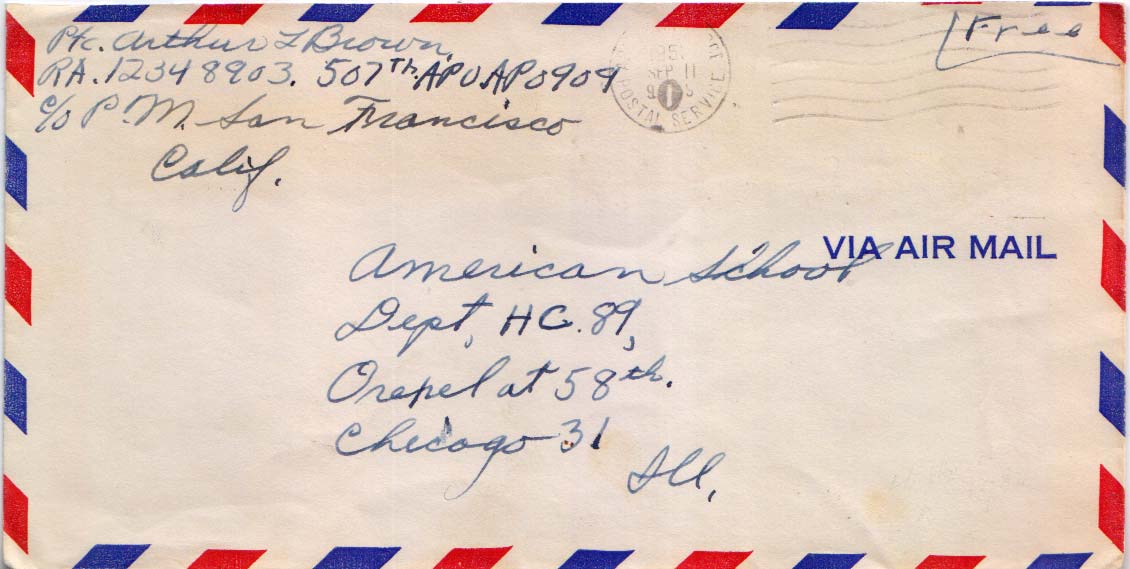 Pfc. Arthur L Brown,
RA. 12348903. 507th. APU. APO 909
c/o P. M. San Francisco
Calif.
SEP 11
POSTAL SERVICE
1
Free
VIA AIR MAIL
American School
Dept, HC. 89,
Orepel at 58th.
Chicago 31
Ill,